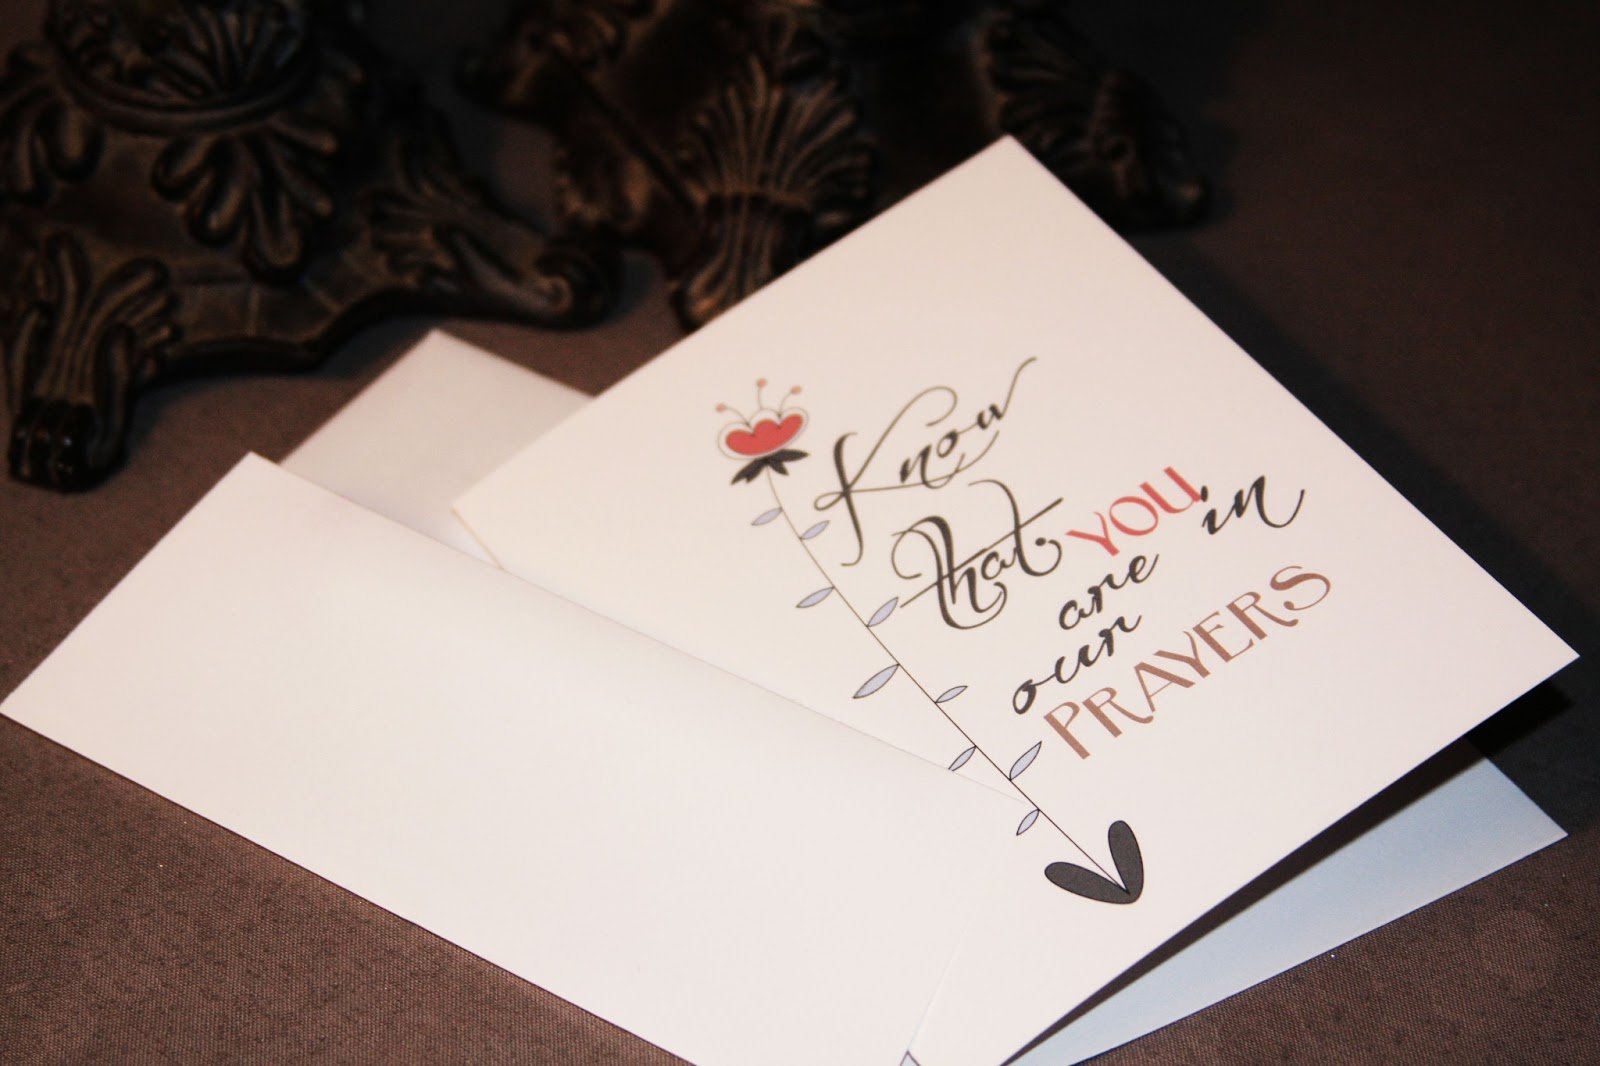 Know
that YOU
are in
our
PRAYERS